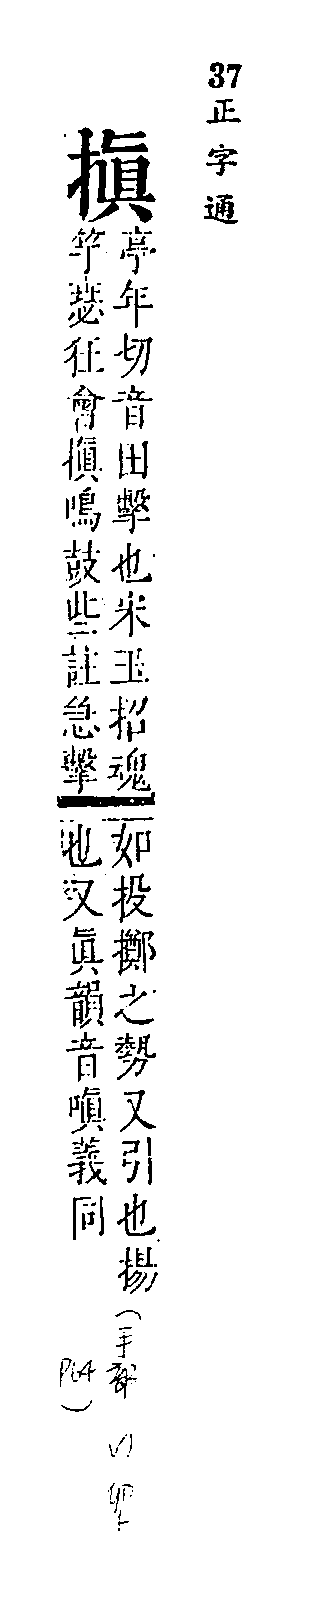 37正字通
搷
亭年切音田擊也宋玉招魂
竽瑟狂會搷鳴鼓些註急擊
如投擲之勢又引也揚
也又眞韻音嗔義同
(手部
P64)